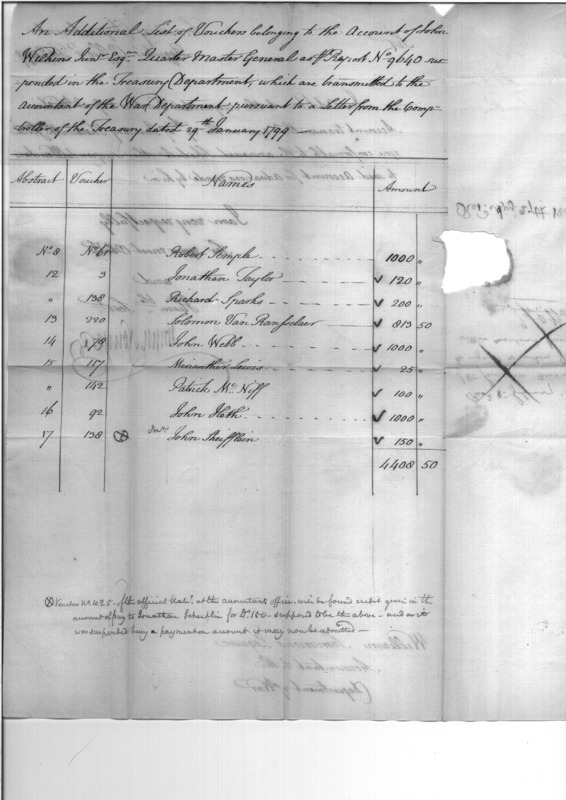 An Additional List of Vouchers belonging to the Account of John
Wilkins Junr. Esqr. Quarter Master General as P Report No. 9640 sus-
-pended in the Treasury Department, which are transmitted to the
accountant of the War Department, pursuant to a Letter from the Comp-
-troller of the Treasury dated 29th. January 1799 —
Abstract Voucher Names Amount
No. 8 No. 61 Robert Semple 1000 "
12 3 Jonathan Taylor ✓ 120 "
" 138 Richard Sparks ✓ 200 "
13 220 Solomon Van Ransselaer ✓ 813 50
14 178 John Webb ✓ 1000 "
15 117 Meriwether Lewis ✓ 25 "
" 142 Patrick Mc. Niff ✓ 100 "
16 92 John Heth ✓ 1000 "
17 138 ⊗ Jona. John Sheifflain ✓ 150 "
4408 50
⊗ Voucher No. 1025 of the official Stat. at the accountants office will be found credit given in the
account of pay to Jonathan Schieflin for Ds. 150 - supposed to be the above - and as it
was suspended being a payment on account it may now be admitted —